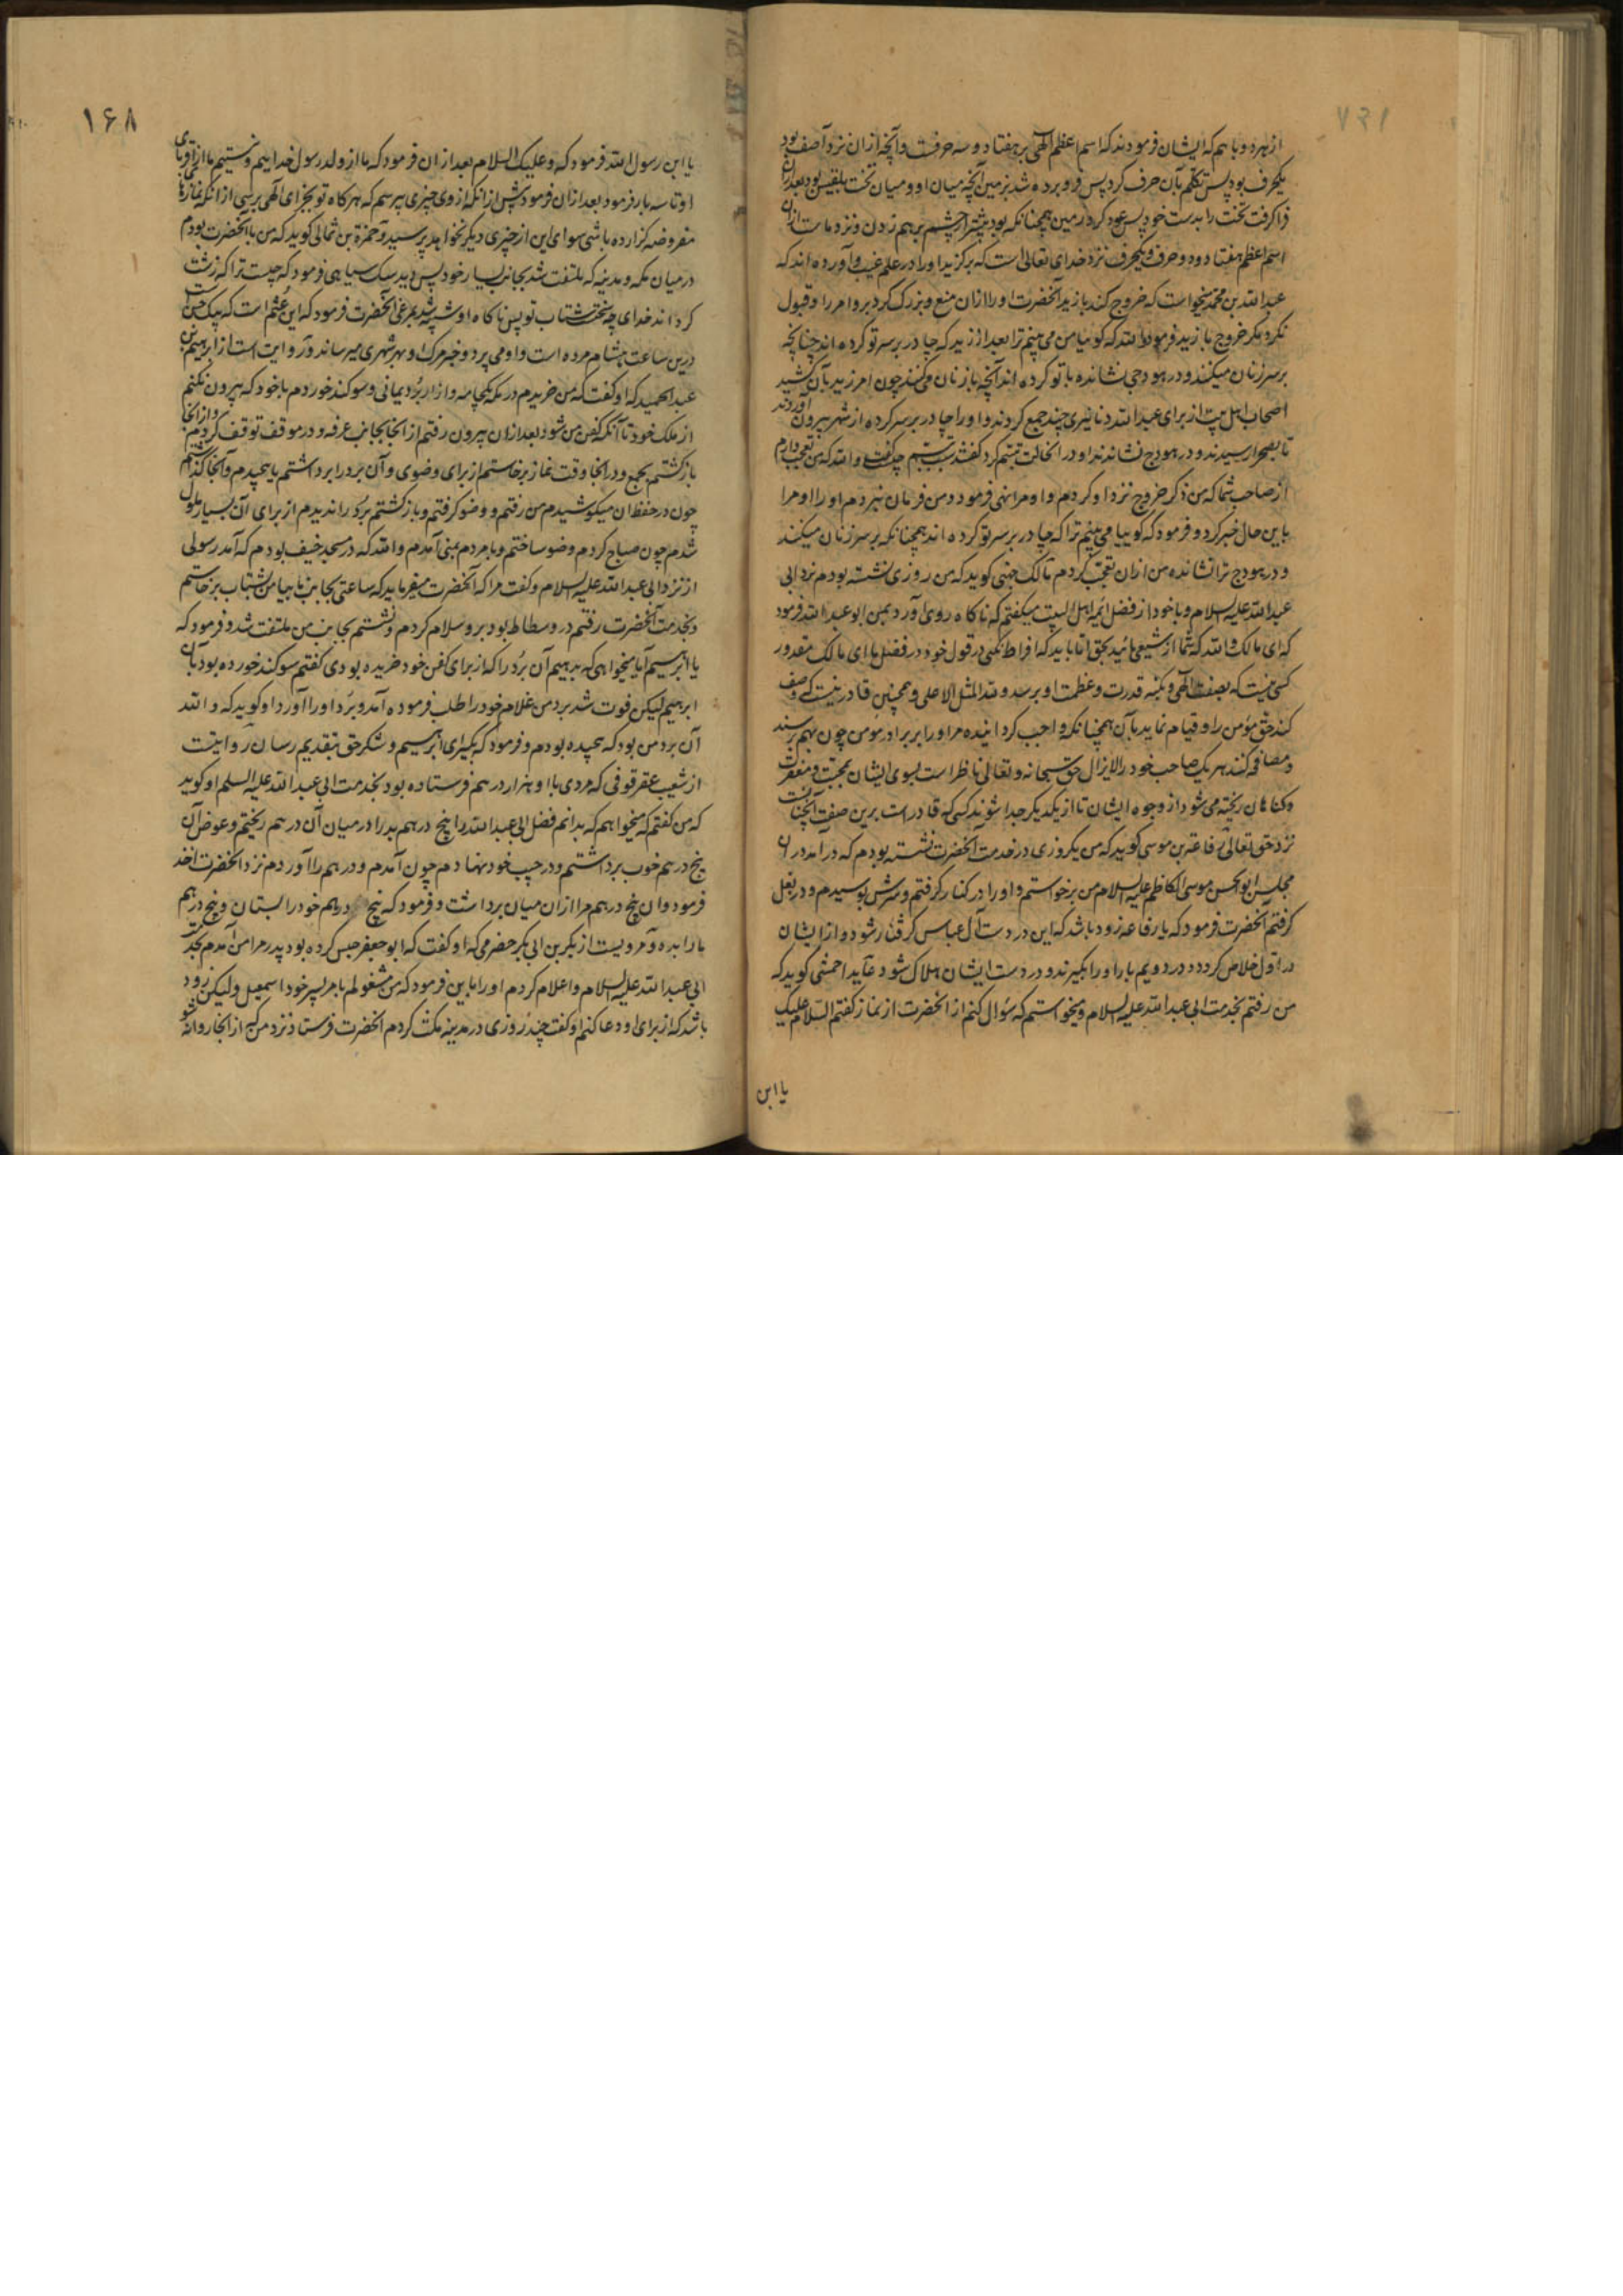 از هر دو با هم که ایشان فرمودند که اسم اعظم الهی بر هفتاد و سه حرفست و آنچه از ان نزد آصف بود
یکحرف بود پس تکلم بآن حرف کرد پس فرو برده شد بزمین آنچه میان او و میان تخت بلقیس بود بعد ازان
فرا کرفت تخت را بدست خود پس عود کرد زمین همچنانکه بود پیشتر از چشم بر هم زدن و نزد ماست ازان
اسم اعظم هفتاد و دو حرف و یکحرف نزد خدای تعالی است که برکزید او را در علم غیب و آورده اند که
عبد الله بن محمد میخواست که خروج کند با زید آنحضرت او را ازان منع و بزرک کرد برو امر را و قبول
نکرد مکر خروج با زید فرمود والله که کوییا من می بینم ترا بعد از زید که چادر بر سر تو کرده اند چنانچه
بر سر زنان میکنند و در هودجی نشانده با تو کرده اند آنچه با زنان می کنند چون امر زید بآن کشید
اصحاب اهل بیت از برای عبد الله دنانیری چند جمع کردند و او را چادر بر سر کرده از شهر بیرون آوردند
تا بصحرا رسیدند و در هودج نشاندند او در انحالت تبسم کرد کفتند سبب تبسم چیست کفت والله که من تعجب دارم
از صاحب شما که من ذکر خروج نزد او کردم و او مرا نهی فرمود و من فرمان نبردم او را او مرا
باین حال خبر کرد و فرمود که کوییا می بینم ترا که چادر بر سر تو کرده اند همچنانکه بر سر زنان میکنند
و در هودج ترا نشانده من ازان تعجب کردم مالک جهنی کوید که من روزی نشسته بودم نزد ابی
عبد الله علیه السلام و با خود از فضل ائمه اهل البیت میکفتم که ناکاه روی آورد بمن ابو عبد الله فرمود
که ای مالک والله که شما از شیعه مائید بحق اتا باید که افراط نکنی در قول خود در فضل ما ای مالک مقدور
کسی نیست که بصفت الهی و بکنه قدرت و عظمت او برسد و لله المثل الاعلی و همچنین قادر نیست که وصف
کند حق مؤمن را و قیام نماید بآن همچنانکه واجب کردانیده مر او را بر برادر مؤمن چون بهم رسند
و مصافحه کنند هر یک صاحب خود را لایزال حق سبحانه و تعالی ناظر است بسوی ایشان بمحبت و مغفرت
و کناهان ریخته می شود از وجوه ایشان تا از یکدیکر جدا شوند که کی قادر است برین صفت آنچنانست
نزد حق تعالی رفاعة بن موسی کوید که من یکروزی در خدمت آنحضرت نشسته بودم که درآمد دران
مجلس ابو الحسن موسی الکاظم علیه السلام من برخواستم و او را در کنار کرفتم و سرش بوسیدم و در بغل
کرفتم آنحضرت فرمود که یا رفاعه زود باشد که این در دست آل عباس کرفتار شود و از ایشان
در اول خلاص کردد و در دویم بار او را بکیرند و در دست ایشان هلاک شود عاید احمسی کوید که
من رفتم بخدمت ابی عبد الله علیه السلام و میخواستم که سؤال کنم از آنحضرت از نماز کفتم السلام علیک
یا ابن
۱۶۸
یا ابن رسول الله فرمود که و علیک السلام بعد ازان فرمود که ما از ولد رسول خداییم و نیستیم ما از اقربای
او تا سه بار فرمود بعد ازان فرمود پیش ازانکه از وی چیزی بپرسم که هر کاه تو بجزای الهی برسی ازانکه نمازهای
مفروضه کزارده باشی سوای این از چیزی دیکر نخواهد پرسید و حمزة بن ثمالی کوید که من با آنحضرت بودم
درمیان مکه و مدینه که ملتفت شد بجانب یسار خود پس دید سک سیاهی فرمود که چیست ترا که زشت
کرداند خدای چه سختست شتاب تو پس ناکاه او شبیه شد بمرغی آنحضرت فرمود که این عثم است که پیک جن است
درین ساعت هشام مرده است و او می پرد و خبر مرک او بهر شهری میرساند و روایت است از ابرهیم بن
عبد الحمید که او کفت که من خریدم در مکه یکجامه وار از برد یمانی و سوکند خوردم با خود که بیرون نکنم
از ملک خود تا آنکه کفن من شود بعد ازان بیرون رفتم از انجا بجانب عرفه و در موقف توقف کردم و از انجا
بازکشتم بجمع و در انجا وقت نماز برخاستم از برای وضوی و آن برد را برداشتم پیچیدم و آنجا کذاشتم
چون در حفظ ان میکوشیدم من رفتم و وضو کرفتم و بازکشتم برد را ندیدم از برای آن بسیار ملول
شدم چون صباح کردم وضو ساختم و با مردم بمنی آمدم والله که در مسجد خیف بودم که آمد رسولی
از نزد ابی عبد الله علیه السلام و کفت مرا که آنحضرت میفرماید که ساعتی بجانب ما بیا من بشتاب برخاستم
و بخدمت آنحضرت رفتم در وسطاط بود برو سلام کردم و نشستم بجانب من ملتفت شد و فرمود که
یا ابرهیم آیا میخواهی که بدهیم آن برد را که از برای کفن خود خریده بودی کفتم سوکند خورده بود بآن
ابرهیم لیکن فوت شد برد من غلام خود را طلب فرموده آمد و برد او را آورد او کوید که والله
آن برد من بود که پیچیده بودم و فرمود که بکیر ای ابرهیم و شکر حق بتقدیم رسان روایتست
از شعیب عقرقوفی که مردی با او هزار درهم فرستاده بود بخدمت ابی عبد الله علیه السلم او کوید
که من کفتم که میخواهم که بدانم فضل ابی عبد الله را پنج درهم بد را درمیان آن درهم ریختم و عوض آن
پنج درهم خوب برداشتم و در جیب خود نهادم چون آمدم و درهم را آوردم نزد انحضرت اخذ
فرمود و ان پنج درهم مرا ازان میان برداشت و فرمود که پنج درهم خود را بستان و پنج درهم
ما را بده و مرویست از بکر بن ابی بکر حضرمی که او کفت که ابو جعفر حبس کرده بود پدر مرا من آمدم بخدمت
ابی عبد الله علیه السلام و اعلام کردم او را باین فرمود که من مشغولم بامر پسر خود اسمعیل و لیکن زود
باشد که از برای او دعا کنم او کفت چند روزی در مدینه مکث کردم انحضرت فرستاد نزد من که از انجا روانه شو